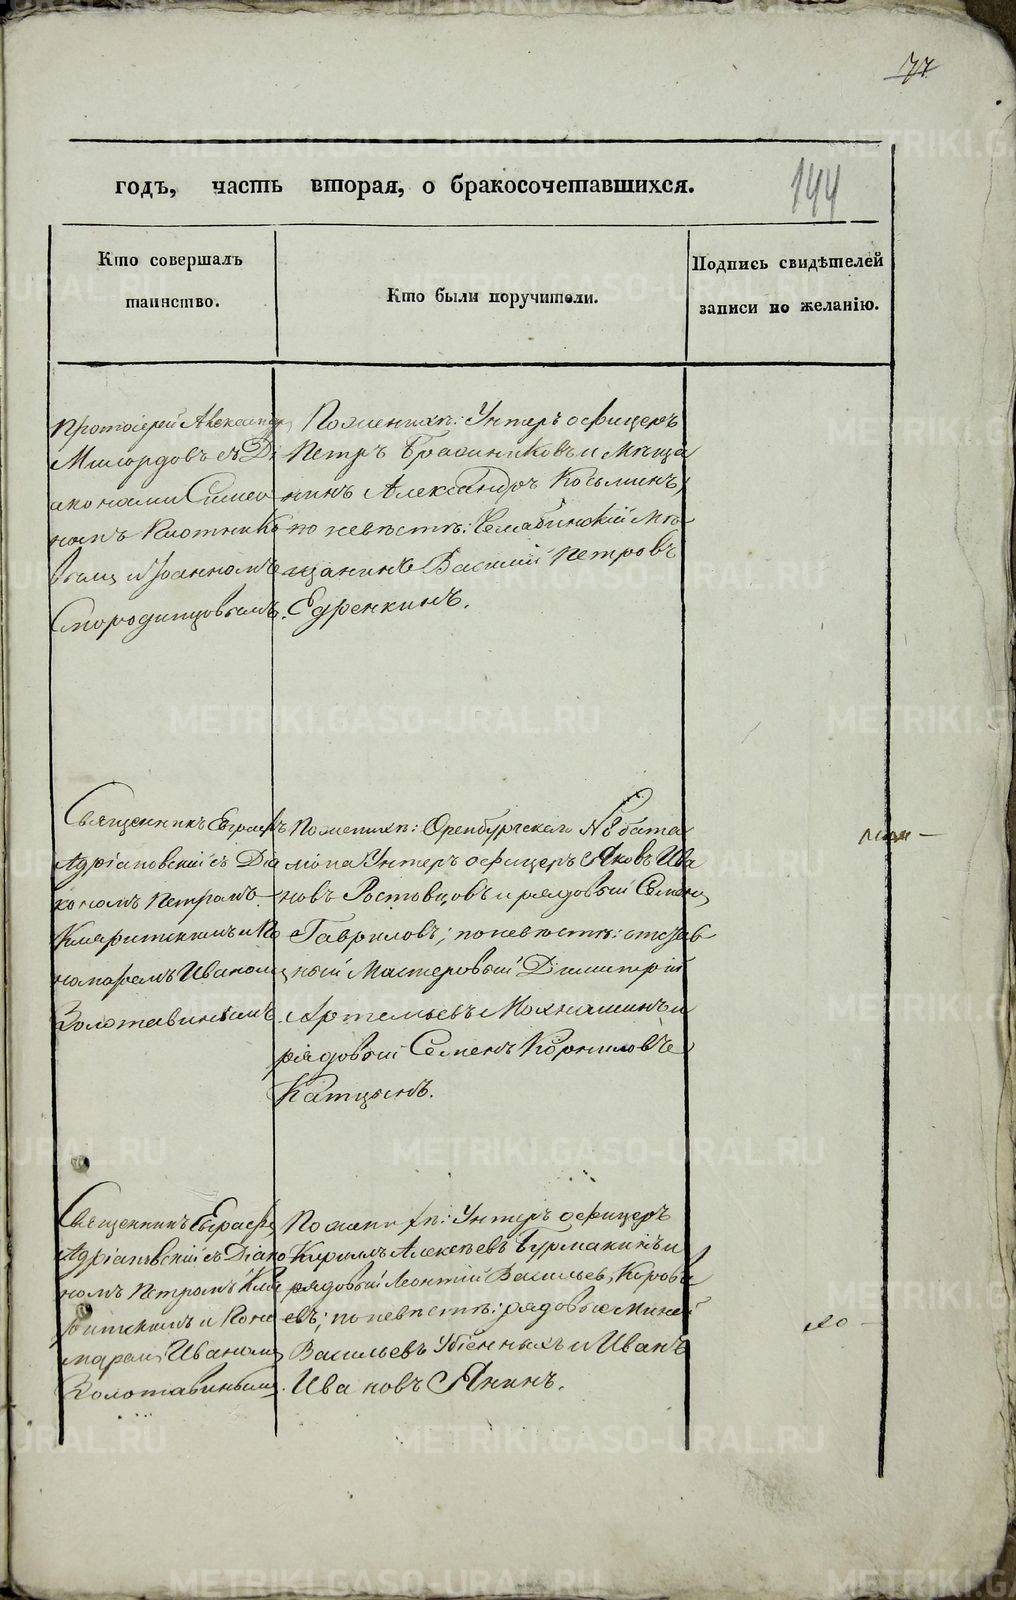 77
годъ, часть вторая, о бракосочетавшихся.
144
Кто совершалъ
таинство.
Кто были поручители.
Подпись свидѣтелей
записи по желанію.
Протоіерей Александръ
Милордовъ съ Ді
аконами Симео
номъ Плотнико
вымъ и Іоанномъ
Смородинцовымъ.
По женихѣ: Унтеръ офицеръ
Петръ Брасиниковъ и Мѣща
нинъ Александръ Козьминъ,
по невѣстѣ: Челябинскій Мѣ
щанинъ Василій Петровъ
Едренкинъ.
Священникъ Евграфъ
Адріановскій съ Діа
кономъ Петромъ
и По
номаремъ Иваномъ
Золотавинымъ.
По женихѣ: Оренбургскаго №8 бата
ліона Унтеръ офицеръ Яковъ Ива
новъ Ростовцовъ и рядовый Семенъ
Гавриловъ; по невѣстѣ: отстав
ный Мастеровый Димитрій
Артемьевъ Мохнашинъ и
рядовый Семенъ Корниловъ
Катцынъ.
Священникъ Евграфъ
Адріановскій съ Діако
номъ Петромъ
и Поно
маремъ Иваномъ
Золотавинымъ.
По женихѣ: Унтеръ офицеръ
Кириллъ Алексѣевъ Бурмакинъ и
рядовый Леонтій Васильевъ Корова
евъ; по невѣстѣ: рядовые Миней
Васильевъ Убіенныхъ и Иванъ
Ивановъ Янинъ.
METRIKI.GASO-URAL.RU